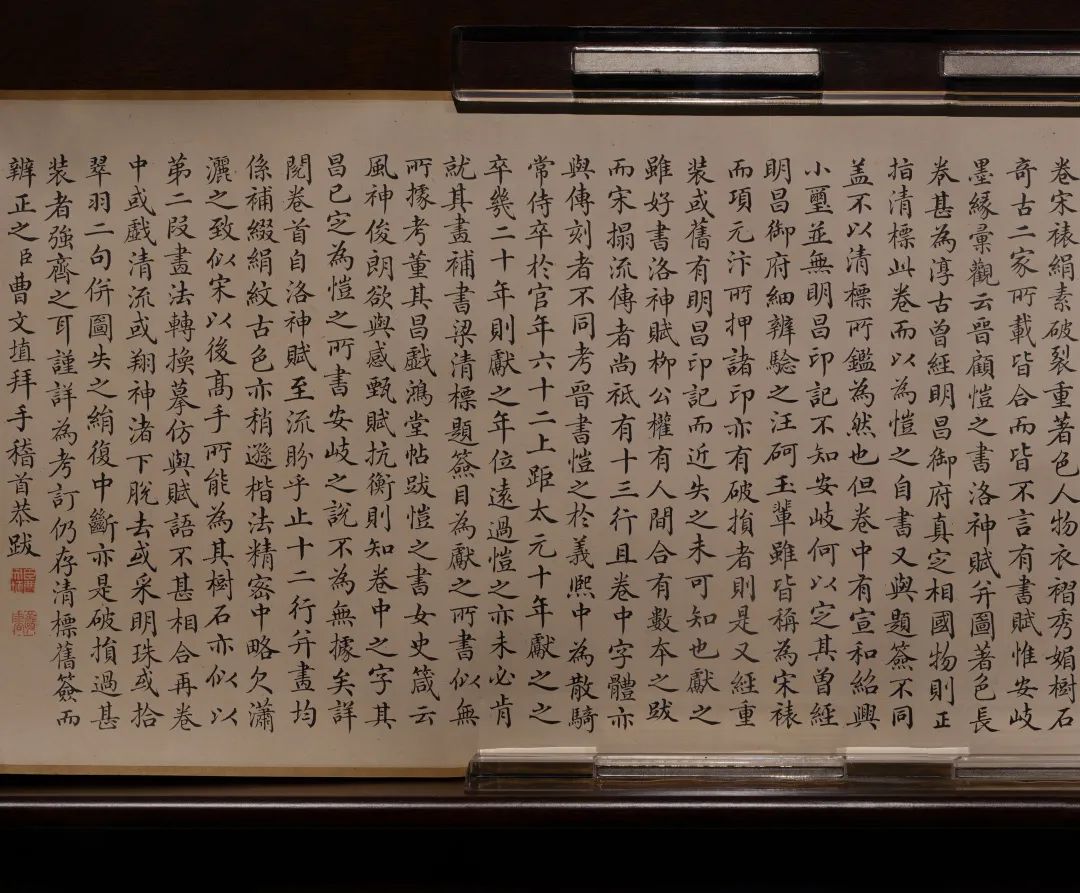 卷宋裱絹素破裂重著色人物衣褶秀媚樹石
奇古二家所載皆合而皆不言有書賦惟安岐
墨緣彙觀云晉顧愷之書洛神賦并圖著色長
卷甚為淳古曾經明昌御府真定相國物則正
指清標此卷而以為愷之自書又與題簽不同
盖不以清標所鑑為然也但卷中有宣和紹興
小璽並無明昌印記不知安岐何以定其曾經
明昌御府細辨驗之汪砢玉輩雖皆稱為宋裱
而項元汴所押諸印亦有破損者則是又經重
裝或舊有明昌印記而近失之未可知也獻之
雖好書洛神賦柳公權有人間合有數本之跋
而宋搨流傳者尚祗有十三行且卷中字體亦
與傳刻者不同考晉書愷之於義熙中為散騎
常侍卒於官年六十二上距太元十年獻之之
卒幾二十年則獻之年位遠過愷之亦未必肯
就其畫補書梁清標題簽目為獻之所書似無
所據考董其昌戲鴻堂帖跋愷之書女史箴云
風神俊朗欲與感甄賦抗衡則知卷中之字其
昌已定為愷之所書安岐之說不為無據矣詳
閱卷首自洛神賦至流盼乎止十二行并畫均
係補綴絹紋古色亦稍遜楷法精密中略欠瀟
灑之致似宋以後高手所能為其樹石亦似以
第二段畫法轉換摹仿與賦語不甚相合再卷
中或戲清流或翔神渚下脫去或采明珠或拾
翠羽二句併圖失之絹復中斷亦是破損過甚
裝者強齊之耳謹詳為考訂仍存清標舊簽而
辨正之臣曹文埴拜手稽首恭跋